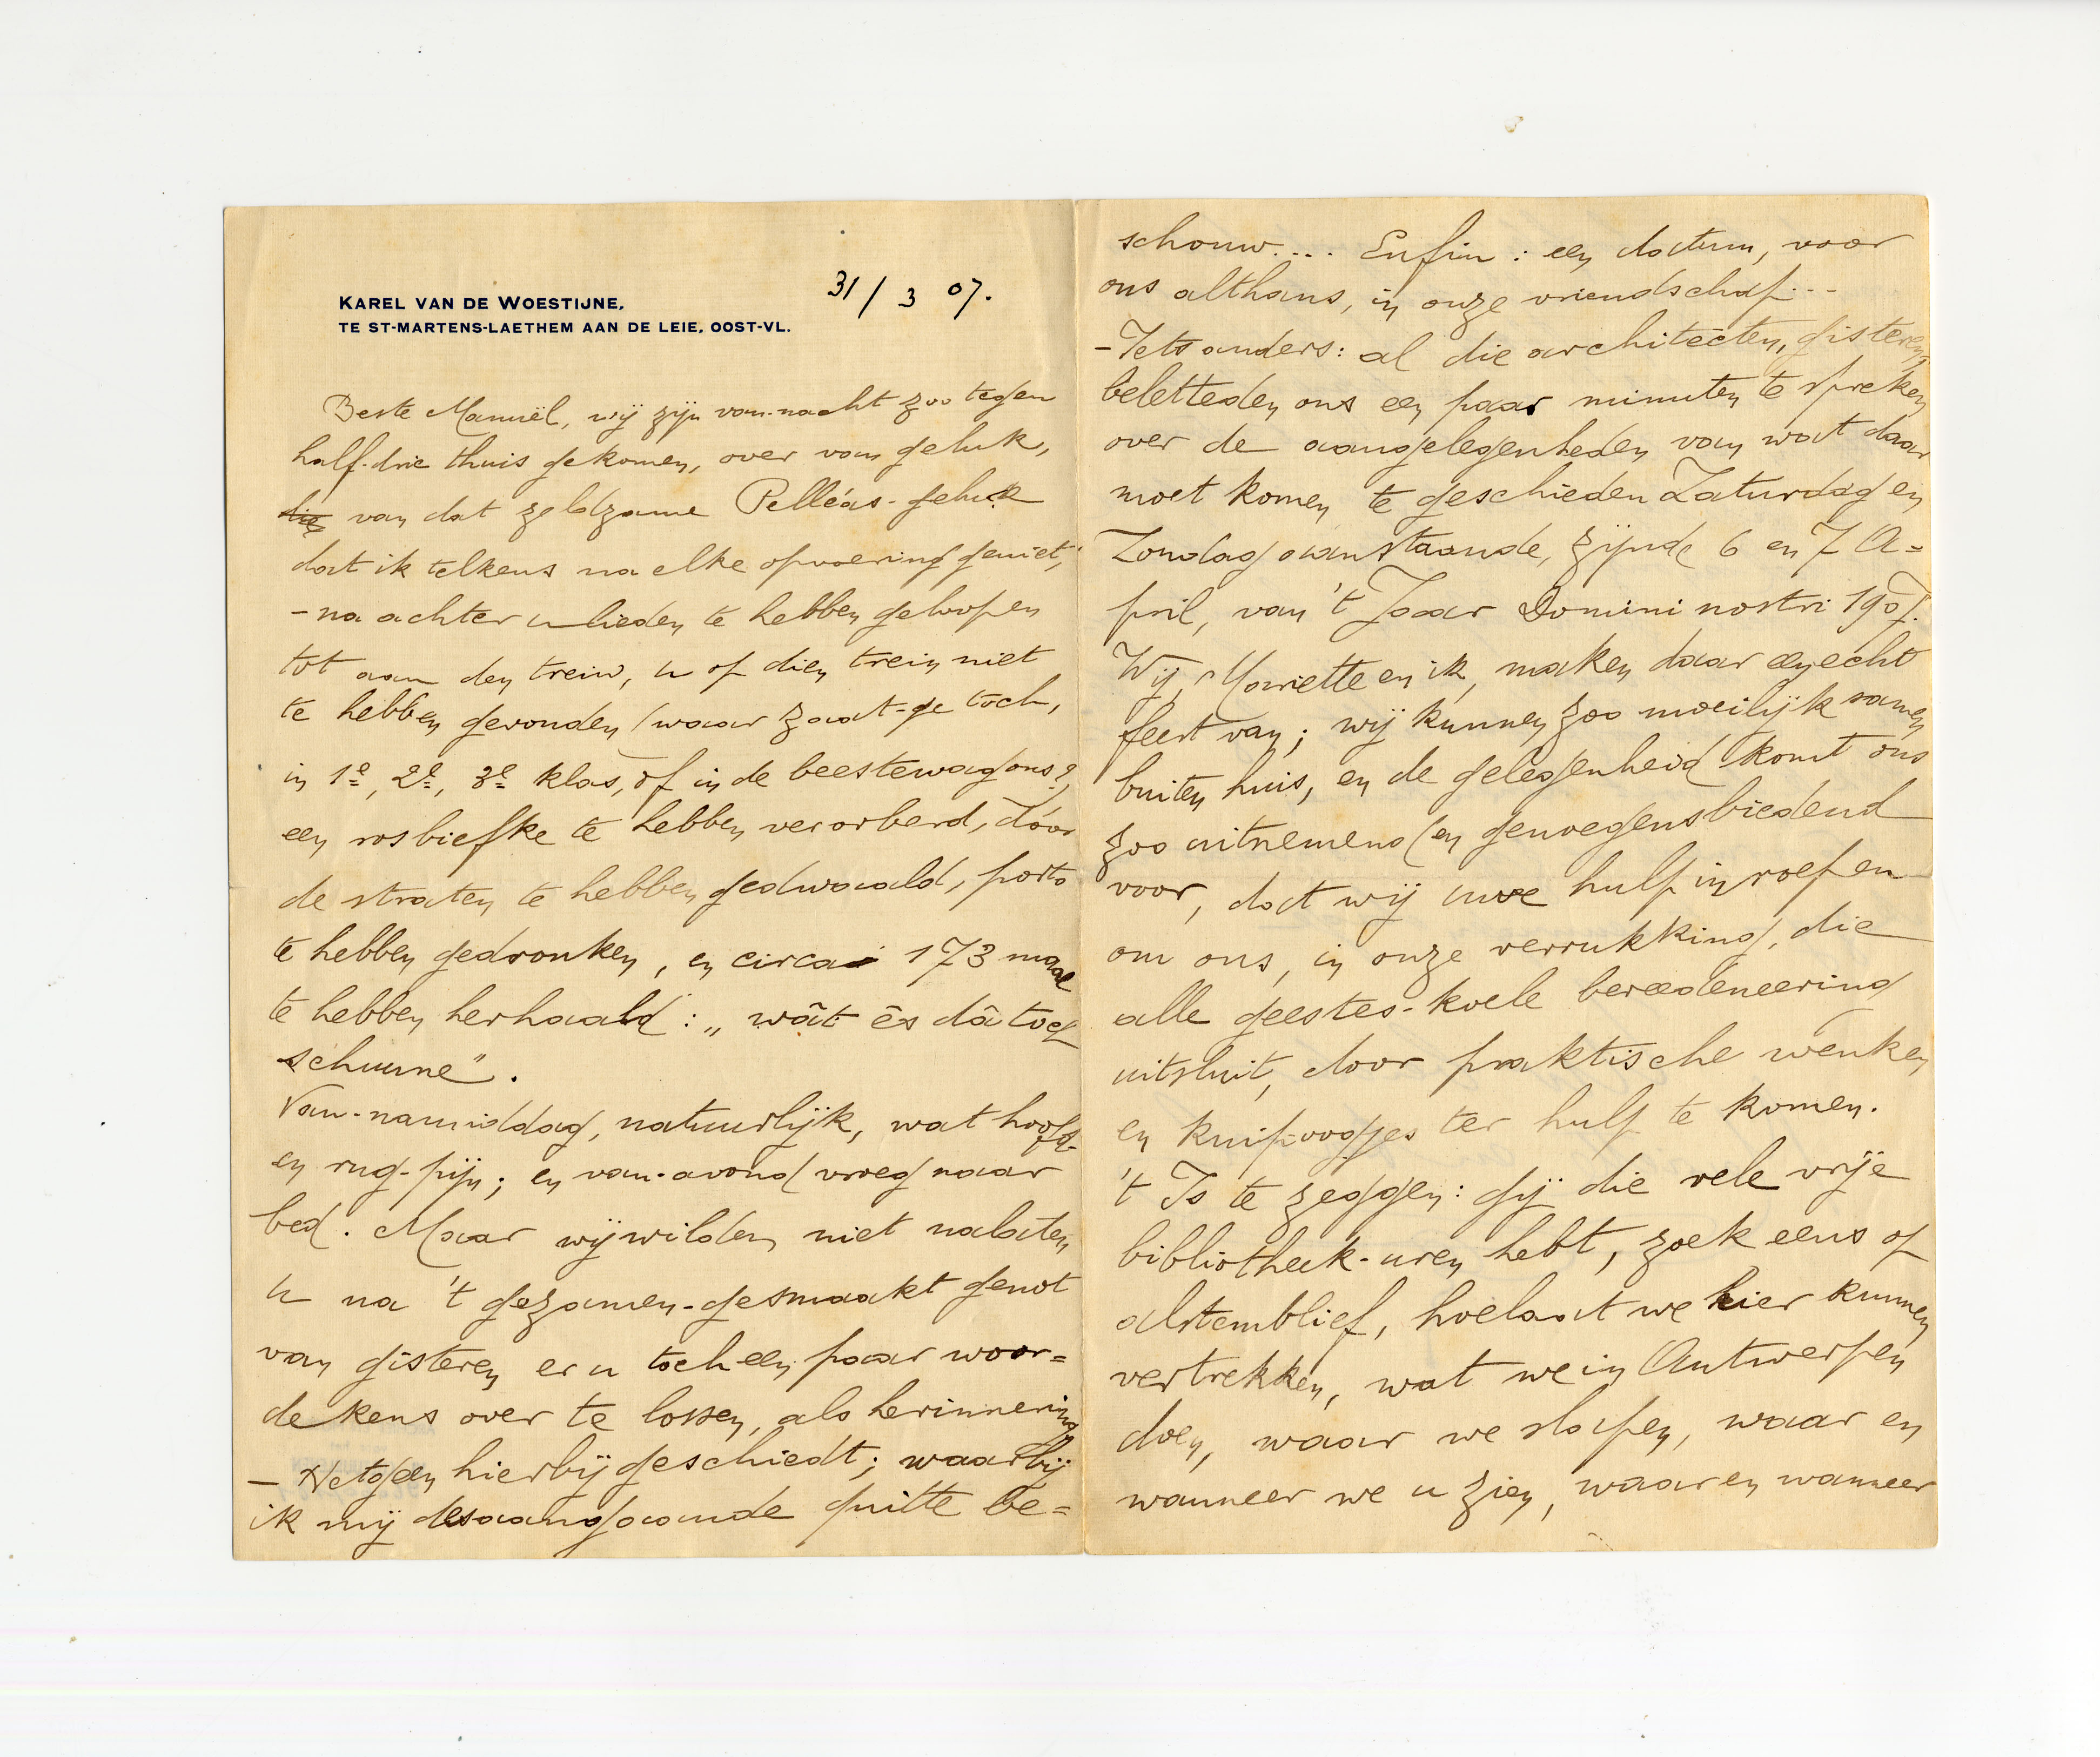 31/3 07.
KAREL VAN DE WOESTIJNE,
TE ST-MARTENS-LAETHEM AAN DE LEIE, OOST-VL.
Beste Manuël, wij zijn van-nacht zoo tegen
half-drie thuis gekomen, over van geluk,
die van dat zeldzame Pelléas-geluk
dat ik telkens na elke opvoering geniet;
- na achter u lieden te hebben geloopen
tot aan den trein, u op dien trein niet
te hebben gevonden (waar zaat-ge toch,
in 1e, 2e, 3e klas, of in de beestewagons?),
een rosbiefke te hebben verorberd, dóor
de straten te hebben gedwaald, porto
te hebben gedronken, en circa 173 maal
te hebben herhaald: „wât ês dâ toch
schuune”.
Van-namiddag, natuurlijk, wat hoofd-
en rug-pijn; en van-avond vroeg naar
bed. Maar wij wilden niet nalaten
u na 't gezamen-gesmaakt genot
van gisteren er u toch een paar woor=
dekens over te lossen, als herinnering
- Netgeen hierbij geschiedt; waarbij
ik mij desaangaande quitte be=
schouw.... Enfin: een datum, voor
ons althans, in onze vriendschap...
- Iets anders: al die architecten, gisteren,
beletteden ons een paar minuten te spreken
over de aangelegenheden van wat daar
moet komen te geschieden Zaturdag en
Zondag aanstaande, zijnde 6 en 7 A=
pril, van 't Jaar Domini nostri 1907.
Wij, Mariette en ik, maken daar een echt
feest van; wij kunnen zoo moeilijk samen
buiten huis, en de gelegenheid komt ons
zoo uitnemend en genoegensbiedend
voor, dat wij uwe hulp inroepen
om ons, in onze verrukking, die
alle geestes-koele beredeneering
uitsluit, door praktische wenken
en knip-oogjes ter hulp te komen.
't Is te zeggen: gij die vele vrije
bibliotheek-uren hebt, zoek eens op
alstemblief, hoelaat we hier kunnen
vertrekken, wat we in Antwerpen
doen, waar we slapen, waar en
wanneer we u zien, waar en wanneer